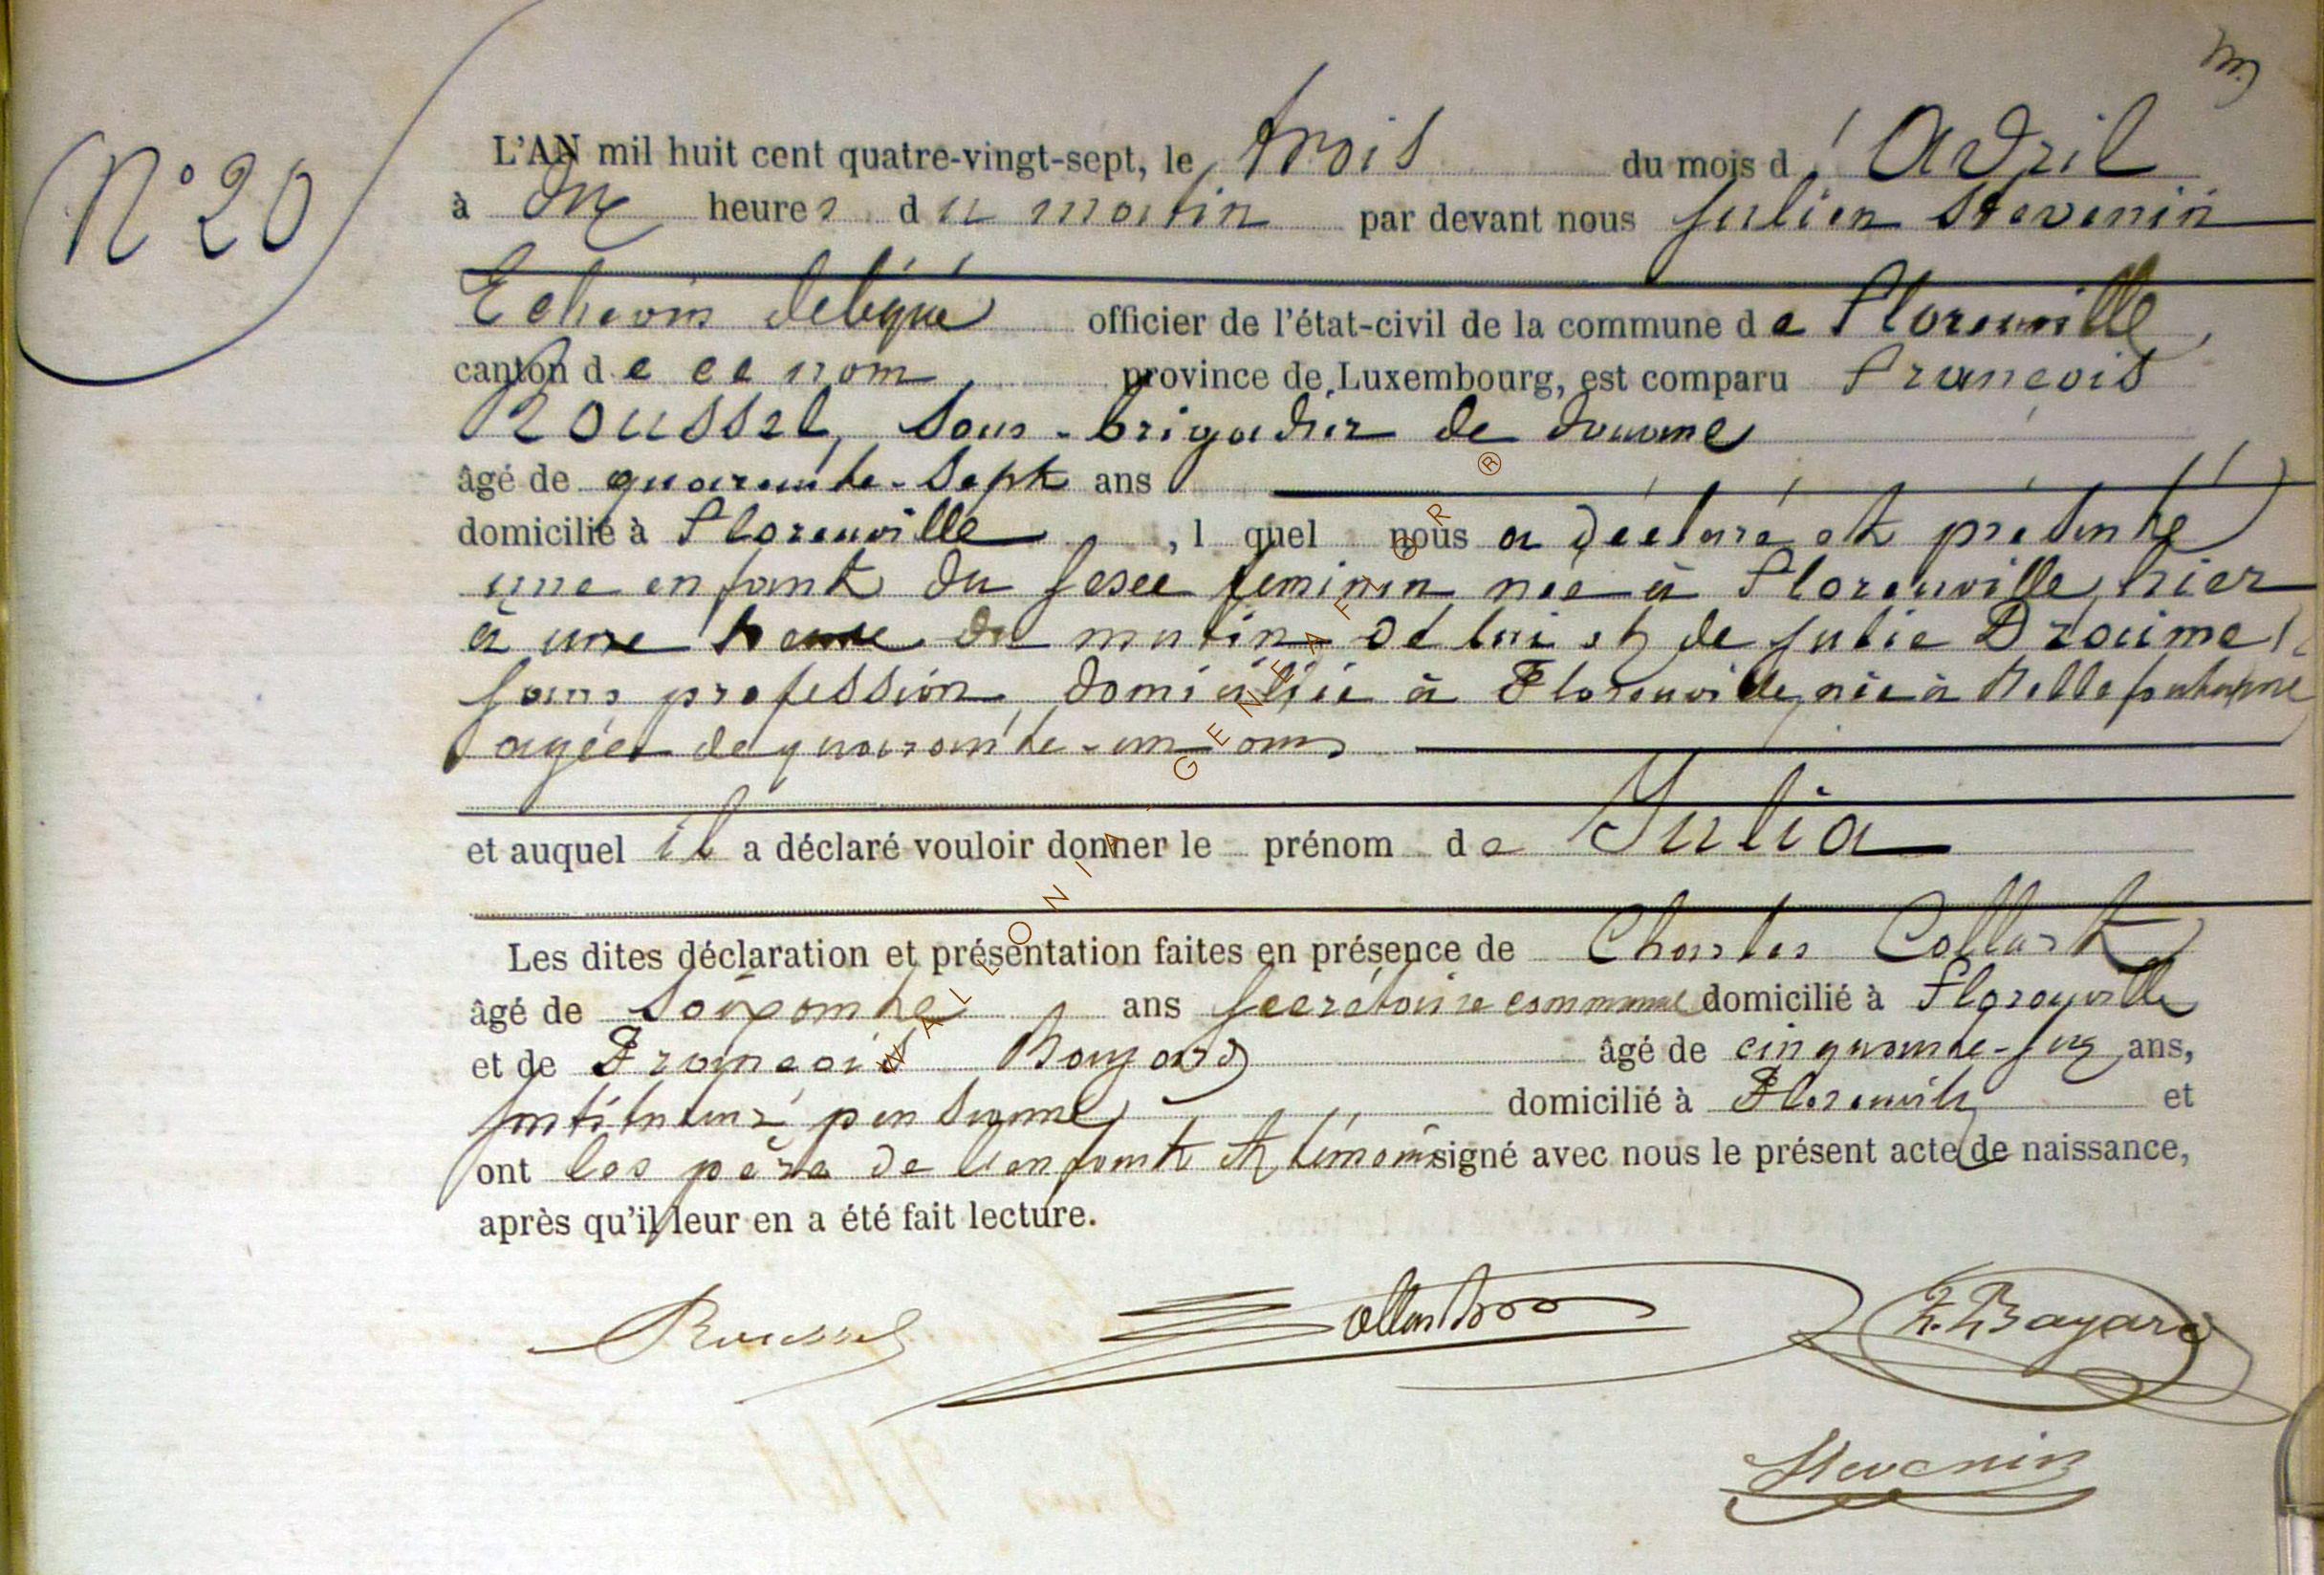 N° 20
L'AN mil huit cent quatre-vingt-sept, le trois du mois d'Avril
à dix heures du matin par devant nous Julien Stevenin
Echevin délégué officier de l'état-civil de la commune de Florenville,
canton de ce nom, province de Luxembourg, est comparu François
Roussel, sous-brigadier de douane
âgé de quarante-sept ans
domicilié à Florenville, l quel nous a déclaré et présenté
une enfant du sexe feminin née à Florenville, hier
à une heure du matin de lui et de Julie
sans profession, domiciliée à Florenville, née à Bellefontaine
agée de quarante-un ans
et auquel il a déclaré vouloir donner le prénom de Julia
Les dites déclaration et présentation faites en présence de Charles Collart
âgé de soixante ans secrétaire communal domicilié à Florenville
et de François Bayard âgé de cinquante-six ans,
instituteur pensionné domicilié à Florenville et
ont les père de l'enfant et témoins signé avec nous le présent acte de naissance,
après qu'il leur en a été fait lecture.
Roussel Collart F. Bayard
Stevenin
WALLONIA - GENEAFLOR ®